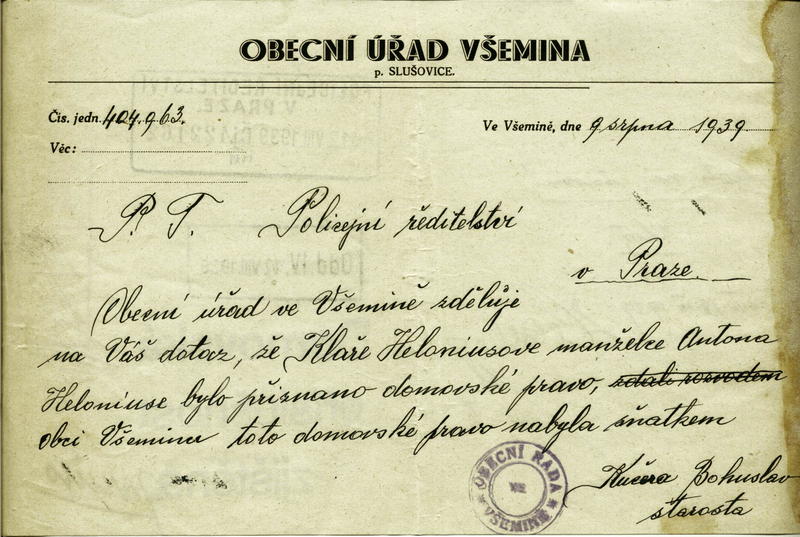 OBECNÍ ÚŘAD VŠEMINA
p. SLUŠOVICE.
Čís. jedn. 404.963.
Ve Všemině, dne 9 srpna 1939
Věc:
P. T. Policejní ředitelství
v Praze.
Obecní úřad ve Všemině zděluje
na Váš dotaz, že Klaře Heloniusove manželce Antona
Heloniuse bylo přiznano domovské pravo, zdali rozvodem
obci Všemina toto domovské pravo nabyla sňatkem
Kučera Bohuslav
starosta
OBECNÍ RADA
VE
VŠEMINĚ